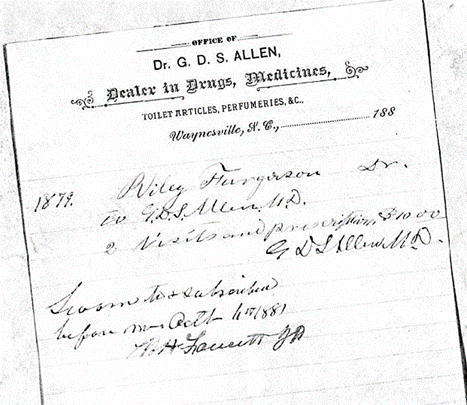 OFFICE OF
Dr. G. D. S. ALLEN,
Dealer in Drugs, Medicines,
TOILET ARTICLES, PERFUMERIES, &C.,
Waynesville, N. C., 188
1879. Riley Furgerson Dr.
to G.D.S. Allen, M.D.
2 Visits and prescription, $10 00
G D S Allen, M.D.
Sworn to & subscribed
before me Oct 1881
J.P.